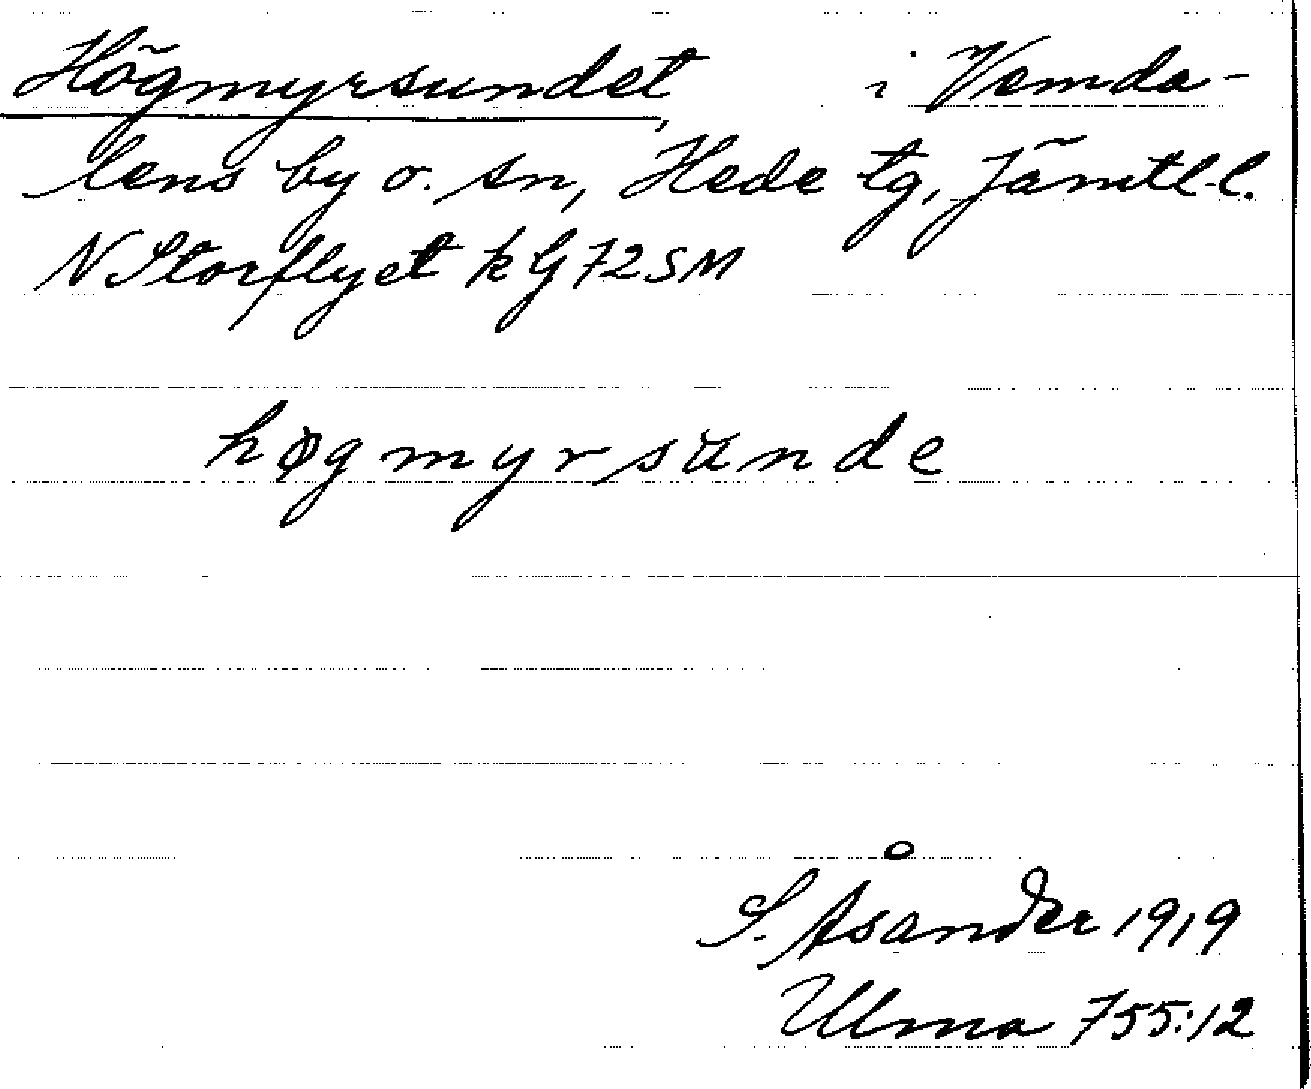 Högmyrsundet, i Vemda-
lens by o. sn, Hede tg, Jämtl. l.
N Storflyet k G 72 SM
høgmyrsunde
S. Åsander 1919
Ulma 755:12